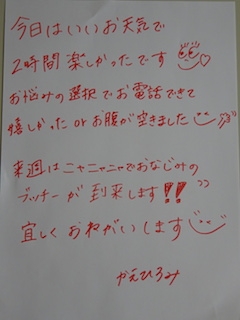 今日はいいお天気で
2時間楽しかったです
お悩みの選択でお電話できて
嬉しかった or お腹が空きました
来週はニャニャニャでおなじみの
ブッチーが到来します!!
宜しくおねがいします
かえひろみ